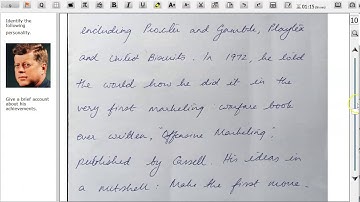 Identify the
following
personality.
Give a brief account
about his
achievements.
01:15
10
including Procter and Gamble, Playtex
and United Biscuits. In 1972, he told
the world how he did it in the
very first marketing warfare book
ever written, "Offensive Marketing",
published by Cassell. His ideas in
a nutshell: Make the first move.